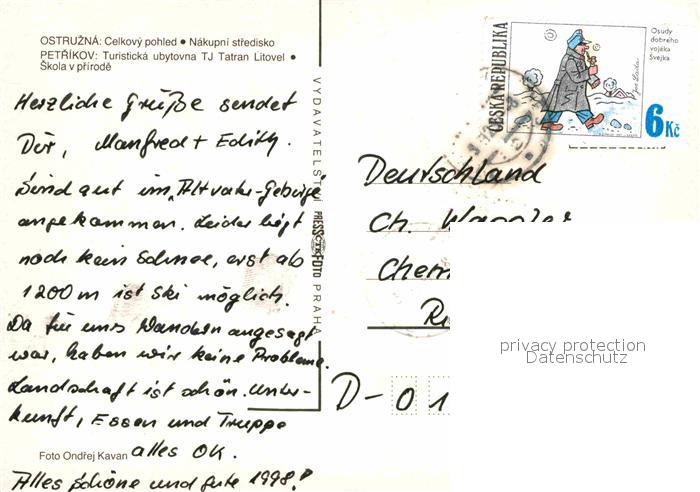 OSTRUŽNÁ: Celkový pohled • Nákupní středisko
PETŘÍKOV: Turistická ubytovna TJ Tatran Litovel •
Škola v přírodě
Herzliche Grüße sendet
Dir, Manfred + Edith.
Sind gut im "Altvater-Gebirge"
angekommen. Leider liegt
noch kein Schnee, erst ab
1200 m ist Ski möglich.
Da für uns Wandern angesagt
war, haben wir keine Probleme.
Landschaft ist schön. Unter-
kunft, Essen und Truppe
alles OK.
Alles Schöne und Gute 1998!
Foto Ondřej Kavan
VYDAVATELSTVÍ PRESSFOTO PRAHA
ČESKÁ REPUBLIKA
Osudy
dobrého
vojáka
Švejka
6 Kč
Deutschland
Ch.
Chem
D-01
privacy protection
Datenschutz